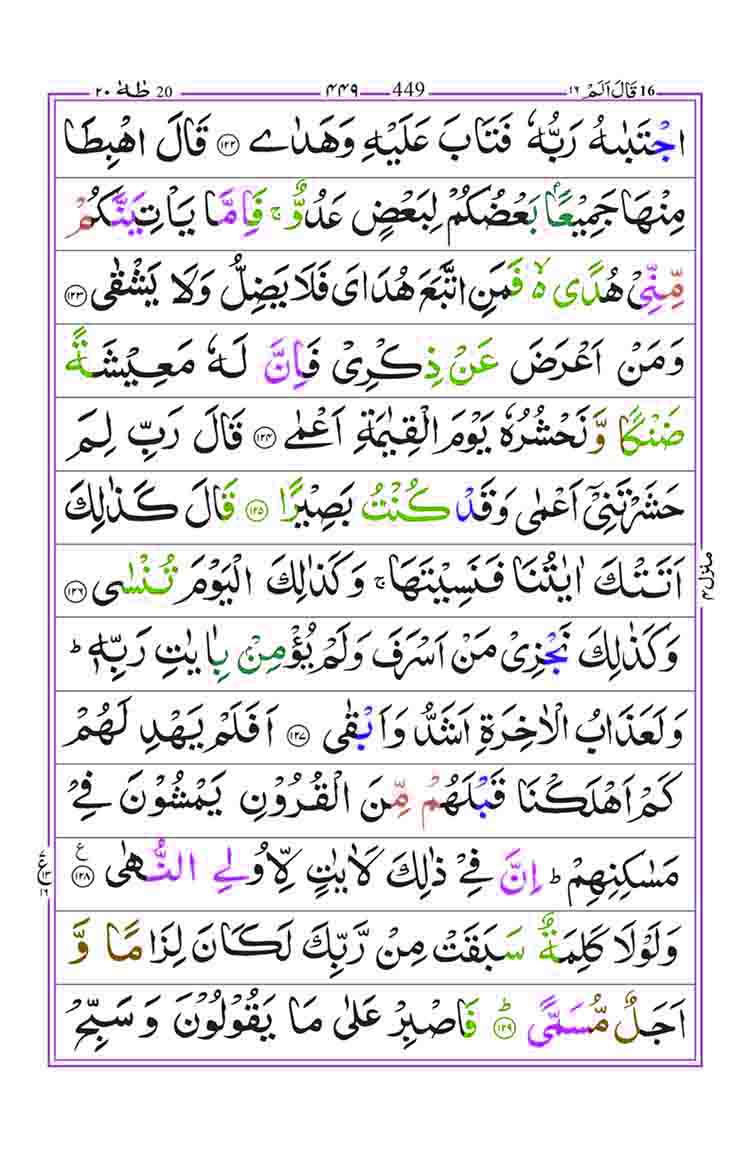 20 طٰهٰ ٢٠ 449 ٤٤٩ 16 قَالَ اَلَمْ ١٦
اجْتَبٰىهُ رَبُّهٗ فَتَابَ عَلَيْهِ وَهَدٰى ۝١٢٢ قَالَ اهْبِطَا
مِنْهَا جَمِيْعًۢا بَعْضُكُمْ لِبَعْضٍ عَدُوٌّ ۚ فَاِمَّا يَاْتِيَنَّكُمْ
مِّنِّيْ هُدًى ۙ۬ فَمَنِ اتَّبَعَ هُدَايَ فَلَا يَضِلُّ وَلَا يَشْقٰى ۝١٢٣
وَمَنْ اَعْرَضَ عَنْ ذِكْرِيْ فَاِنَّ لَهٗ مَعِيْشَةً
ضَنْكًا وَّنَحْشُرُهٗ يَوْمَ الْقِيٰمَةِ اَعْمٰى ۝١٢٤ قَالَ رَبِّ لِمَ
حَشَرْتَنِيْۤ اَعْمٰى وَقَدْ كُنْتُ بَصِيْرًا ۝١٢٥ قَالَ كَذٰلِكَ
اَتَتْكَ اٰيٰتُنَا فَنَسِيْتَهَا ۚ وَكَذٰلِكَ الْيَوْمَ تُنْسٰى ۝١٢٦
وَكَذٰلِكَ نَجْزِيْ مَنْ اَسْرَفَ وَلَمْ يُؤْمِنْۢ بِاٰيٰتِ رَبِّهٖ ؕ
وَلَعَذَابُ الْاٰخِرَةِ اَشَدُّ وَاَبْقٰى ۝١٢٧ اَفَلَمْ يَهْدِ لَهُمْ
كَمْ اَهْلَكْنَا قَبْلَهُمْ مِّنَ الْقُرُوْنِ يَمْشُوْنَ فِيْ
مَسٰكِنِهِمْ ؕ اِنَّ فِيْ ذٰلِكَ لَاٰيٰتٍ لِّاُولِي النُّهٰى ۝١٢٨ ع
وَلَوْلَا كَلِمَةٌ سَبَقَتْ مِنْ رَّبِّكَ لَكَانَ لِزَامًا وَّ
اَجَلٌ مُّسَمًّى ؕ۝١٢٩ فَاصْبِرْ عَلٰى مَا يَقُوْلُوْنَ وَسَبِّحْ
منزل ٤
ع ١٣ ١٦